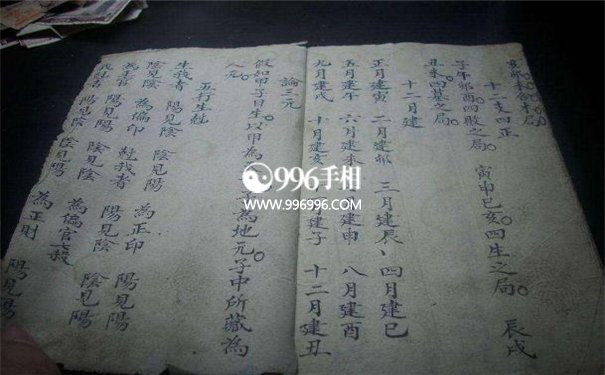 十二支四正
子午卯酉。四敗之局。 寅申巳亥。四生之局。 辰戌
丑未。四墓之局。
十二月建
正月建寅 二月建卯 三月建辰、四月建巳
五月建午 六月建未 月建申 八月建酉
九月建戌 十月建亥 月建子 十二月建丑
論三元
假如甲子日生。以甲為 子為地元。子中所藏為
人元。
五行生尅
生我者 陽見陰 陰見陽 為正印 陽見陽
陰見陰 為偏印 尅我者 陽見陰 陰見陽
為正官 陽見陽 陰見陰 為偏官七殺
尅者 陽見陰 陰見陽 為正財 陽見陽
996手相
www.996996.com